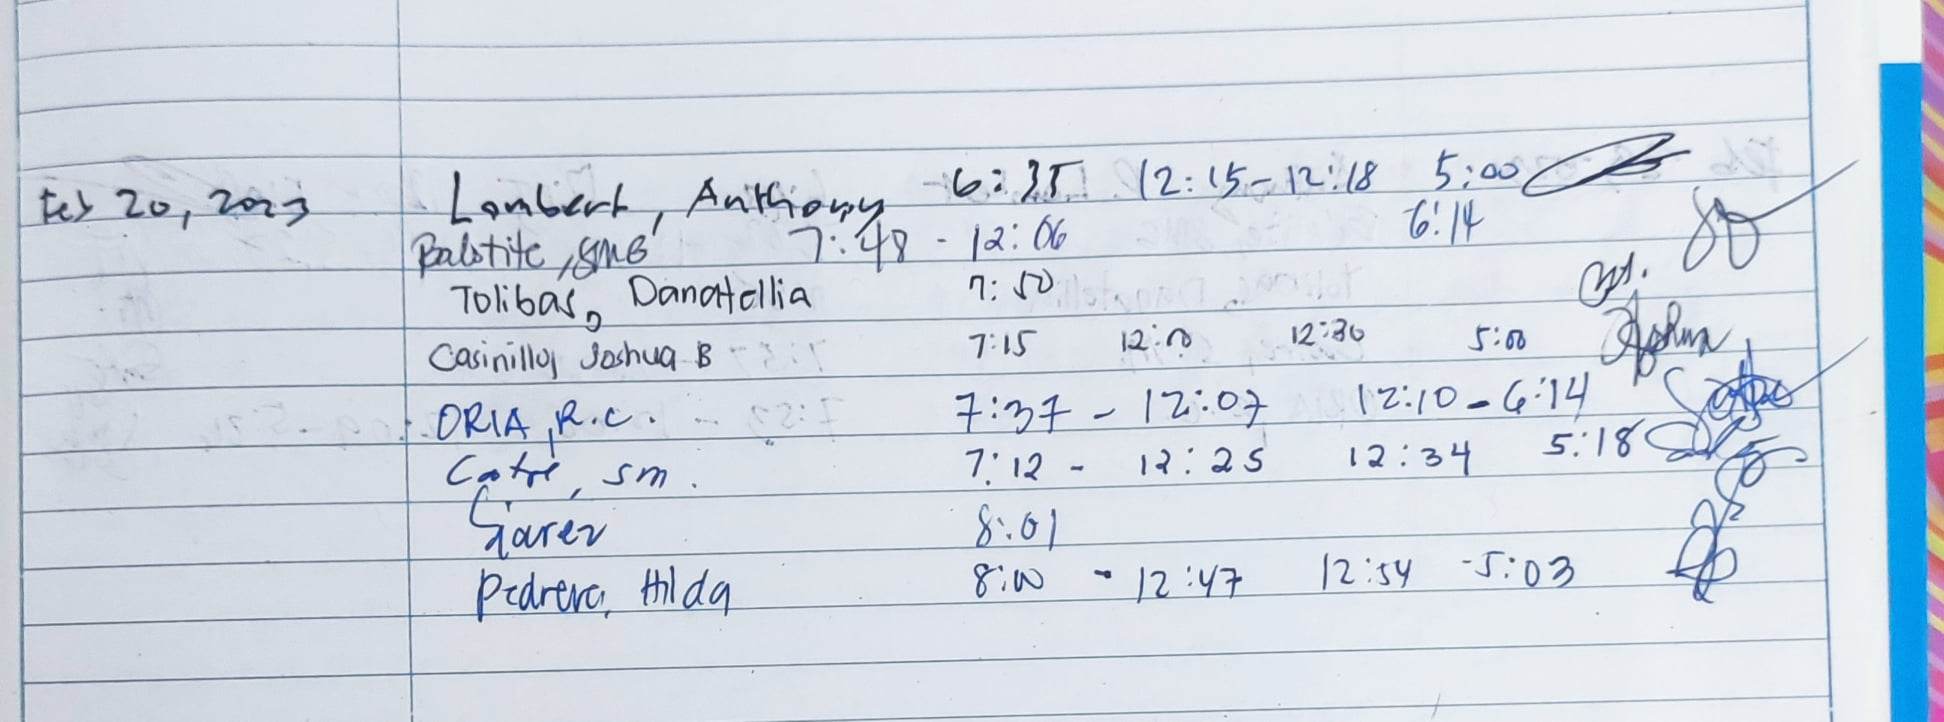 Feb 20, 2023 Lambert, Anthony 6:35 12:15-12:18 5:00
Balotite, SMB 7:48 - 12:06 6:14
Tolibas, Danatellia 7:50
Casinillo, Joshua B 7:15 12:00 12:30 5:00
ORIA, R.C. 7:37 - 12:07 12:10 - 6:14
Catre, sm. 7:12 - 12:25 12:34 5:18
8:01
Pedrera, Hilda 8:00 - 12:47 12:54 - 5:03